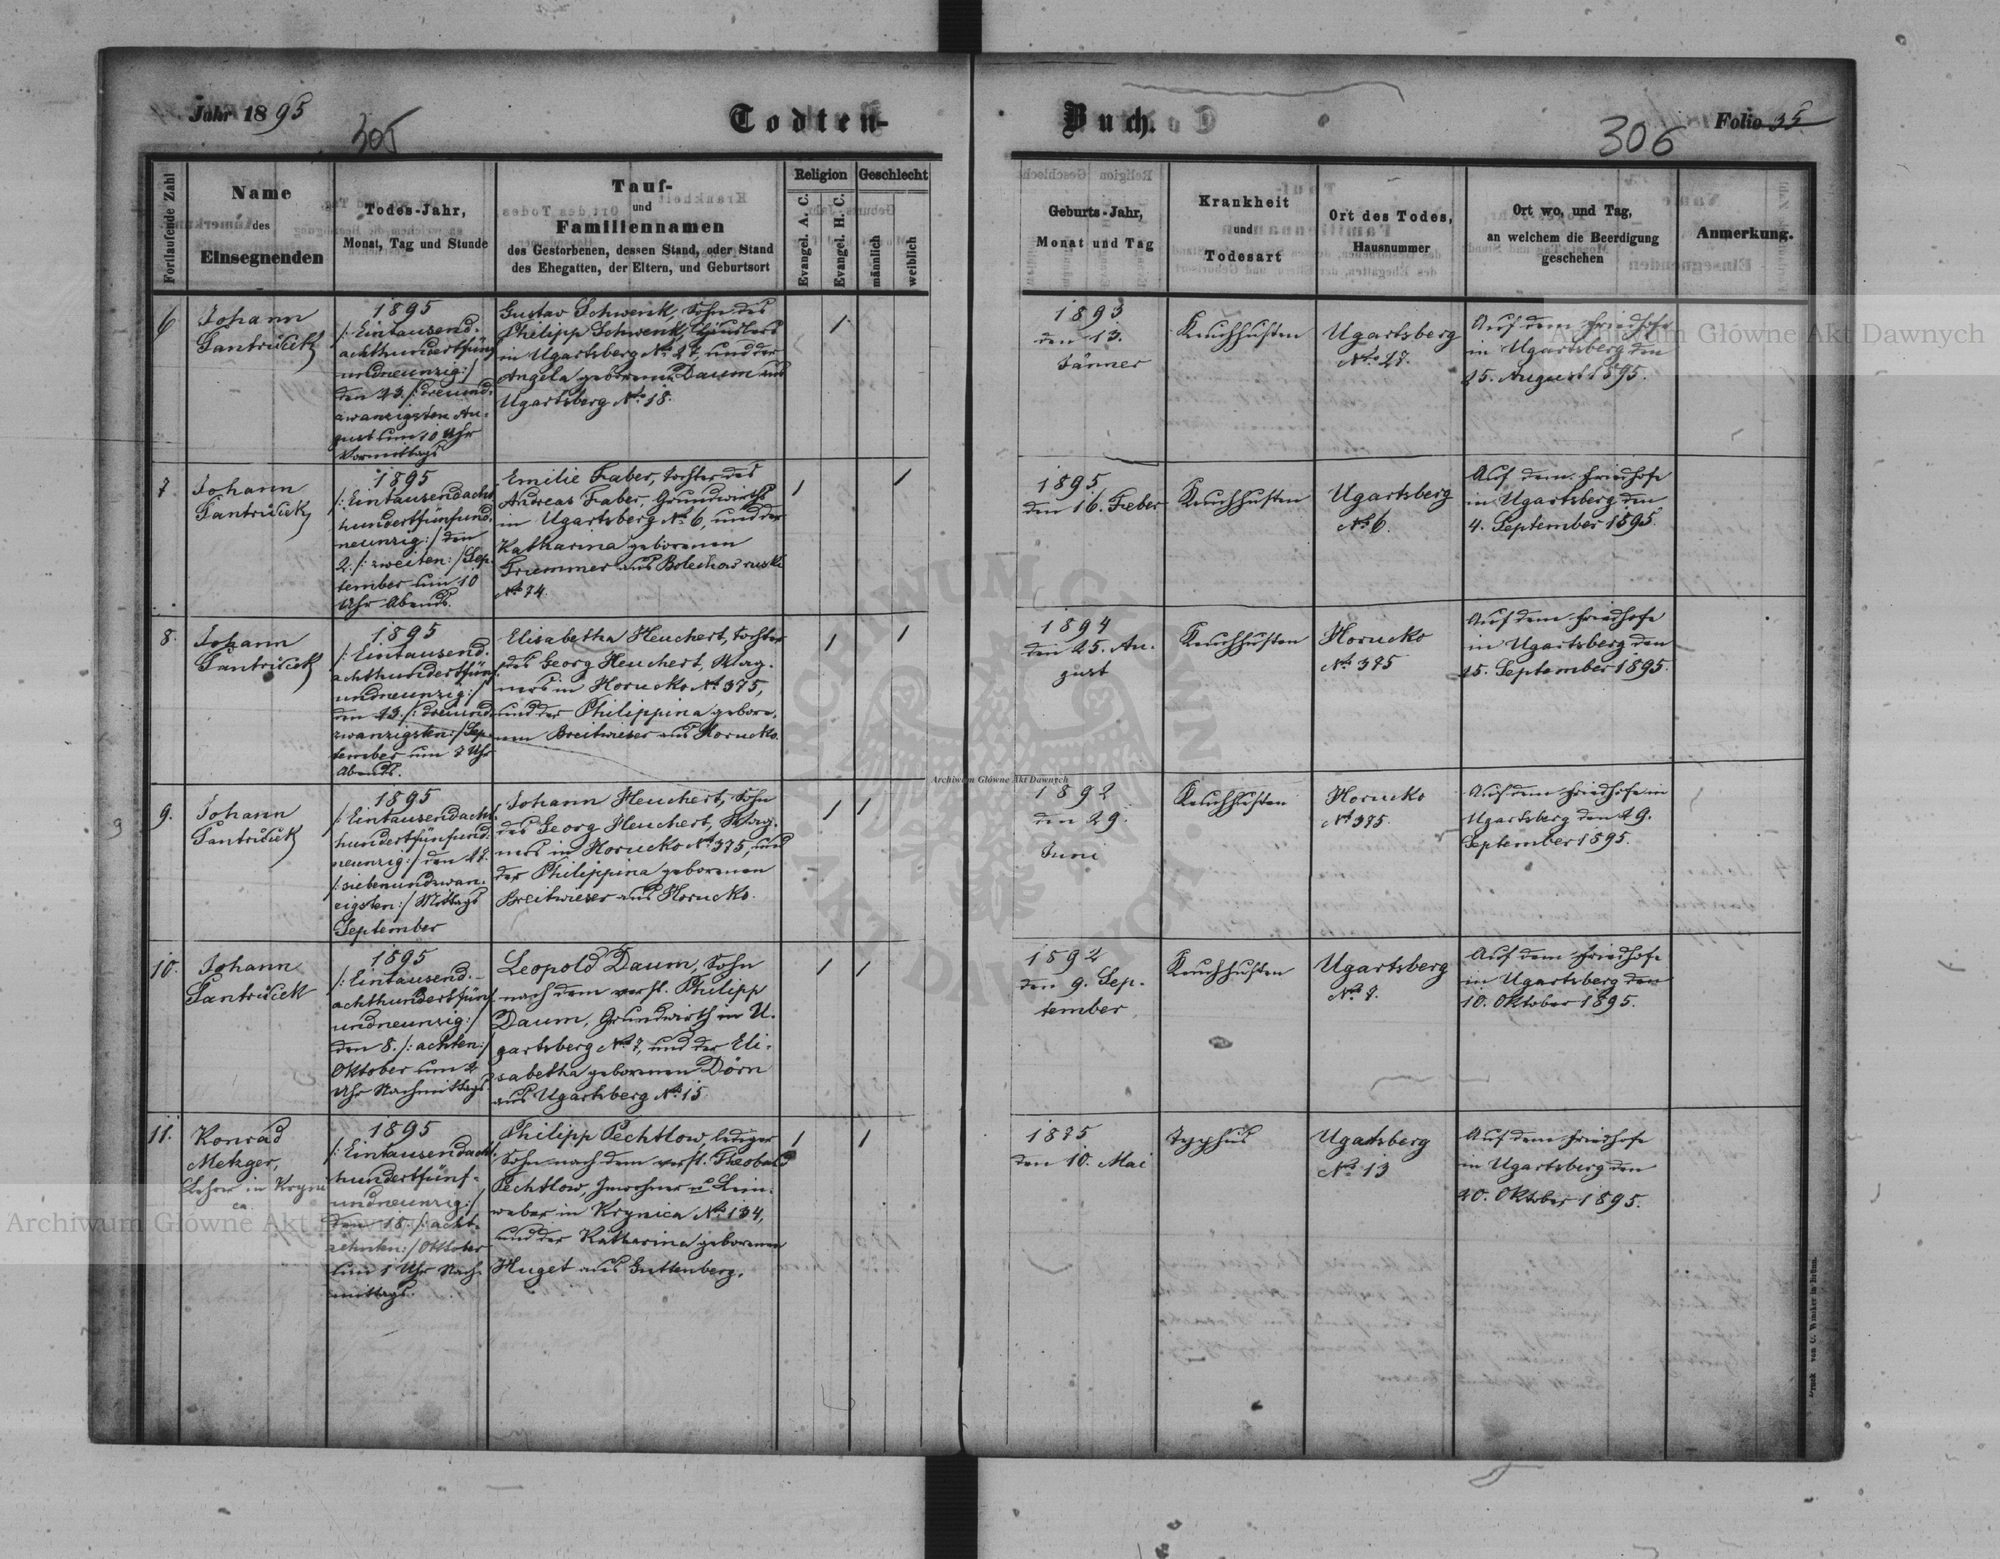 Jahr 1895
305
Todten-
Buch.
306
Folio 35
Fortlaufende Zahl
Name
des
Einsegnenden
Todes-Jahr,
Monat, Tag und Stunde
Tauf-
und
Familiennamen
des Gestorbenen, dessen Stand, oder Stand
des Ehegatten, der Eltern, und Geburtsort
Religion
Evangel. A. C.
Evangel. H. C.
Geschlecht
männlich
weiblich
Geburts-Jahr,
Monat und Tag
Krankheit
und
Todesart
Ort des Todes,
Hausnummer
Ort wo, und Tag,
an welchem die Beerdigung
geschehen
Anmerkung.
6
Johann
1895
/: Eintausend-
achthundertfünf
undneunzig :/
den 23. /: dreiund-
zwanzigsten Au-
gust um 10 Uhr
Vormittags
Gustav Schwenk, Sohn des
Philipp Schwenk,
in Ugartsberg No 27, und der
Angela geborenen Daum aus
Ugartsberg No 18.
1
1893
den 13.
Jänner
Keuchhusten
Ugartsberg
No 27.
Auf dem Friedhofe
in Ugartsberg den
25. August 1895.
7.
Johann
1895
/: Eintausendacht
hundertfünfund-
neunzig :/ den
2. /: zweiten :/ Sep-
tember um 10
Uhr Abends.
Emilie Faber, Tochter des
Andreas Faber, Grundwirths
in Ugartsberg No 6, und der
Katharina geborenen
Trummer aus Bolechow ruski
No 74.
1
1
1895
den 16. Feber
Keuchhusten
Ugartsberg
No 6.
Auf dem Friedhofe
in Ugartsberg den
4. September 1895.
8.
Johann
1895
/: Eintausend-
achthundertfünf
undneunzig :/
den 23. /: dreiund-
zwanzigsten :/ Sep-
tember um 7 Uhr
Abends.
Elisabetha Heuchert, Tochter
des Georg Heuchert, Wag-
ners in Horucko No 375,
und der Philippina gebore-
nen Breitwieser aus Horucko.
1
1
1894
den 25. Au-
gust
Keuchhusten
Horucko
No 375
Auf dem Friedhofe
in Ugartsberg den
25. September 1895.
9.
Johann
1895
/: Eintausendacht-
hundertfünfund-
neunzig :/ den 27.
/: siebenundzwan-
zigsten :/ Mittags
September
Johann Heuchert, Sohn
des Georg Heuchert, Wag-
ners in Horucko No 375, und
der Philippina geborenen
Breitwieser aus Horucko.
1
1
1892
den 29.
Juni
Keuchhusten
Horucko
No 375.
Auf dem Friedhofe in
Ugartsberg den 29.
September 1895.
10.
Johann
1895
/: Eintausend-
achthundertfünf
undneunzig :/
den 8. /: achten :/
Oktober um 2
Uhr Nachmittags
Leopold Daum, Sohn
nach dem verst. Philipp
Daum, Grundwirth in U-
gartsberg No 7, und der Eli-
sabetha geborenen Dörn
aus Ugartsberg No 15
1
1
1892
den 9. Sep-
tember
Keuchhusten
Ugartsberg
No 7.
Auf dem Friedhofe
in Ugartsberg den
10. Oktober 1895.
11.
Konrad
Metzger,
Lehrer in Kryni
ca.
1895
/: Eintausendacht-
hundertfünf-
undneunzig :/
den 18. /: acht-
zehnten :/ Oktober
um 1 Uhr Nach-
mittags.
Philipp Pechtlow, lediger
Sohn nach dem verst. Theobald
Pechtlow, Inwohner u. Lein-
weber in Krynica No 134,
und der Katharina geborenen
Huget aus Guttenberg.
1
1
1875
den 10. Mai
Typhus
Ugartsberg
No 13
Auf dem Friedhofe
in Ugartsberg den
20. Oktober 1895.
Archiwum Główne Akt Dawnych
Archiwum Główne Akt Dawnych
Archiwum Główne Akt Dawnych
ARCHIWUM GŁÓWNE AKT DAWNYCH
Druck von C. Winiker in Brünn.